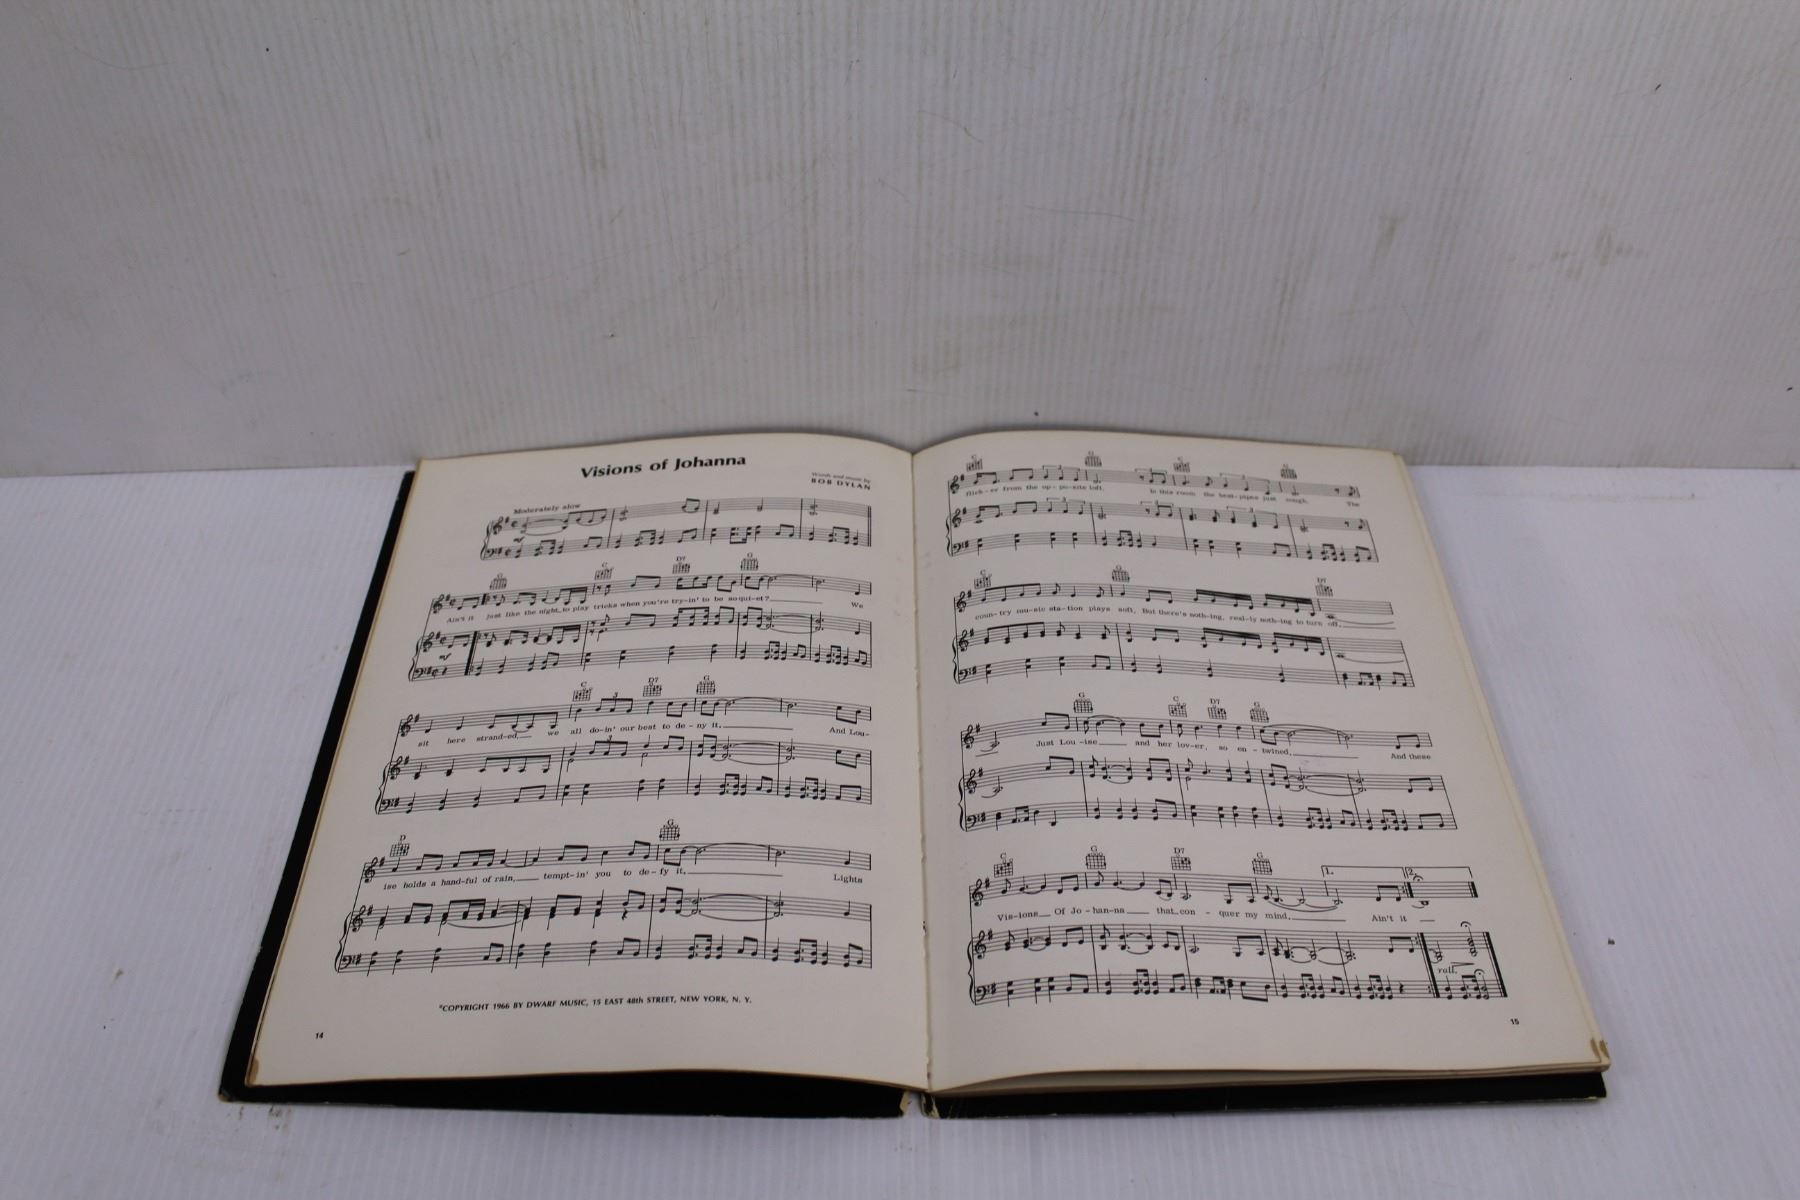 Visions of Johanna
Words and music by
BOB DYLAN
Moderately slow
mf
G C D7 G
Ain't it Just like the night to play tricks when you're try-in' to be so qui-et? We
mf
C D7 G
sit here strand-ed, we all do-in' our best to de-ny it. And Lou-
3
3
D G
ise holds a hand-ful of rain, tempt-in' you to de-fy it. Lights
*COPYRIGHT 1966 BY DWARF MUSIC, 15 EAST 48th STREET, NEW YORK, N. Y.
14
C G C G
flick-er from the op-po-site loft. In this room the heat-pipes just cough, The
C G D7
coun-try mu-sic sta-tion plays soft, But there's noth-ing, real-ly noth-ing to turn off.
G C D7 G
Just Lou-ise and her lov-er, so en-twined, And these
C G D7 G
1. 2.
Vis-ions Of Jo-han-na that con-quer my mind. Ain't it
rall.
15